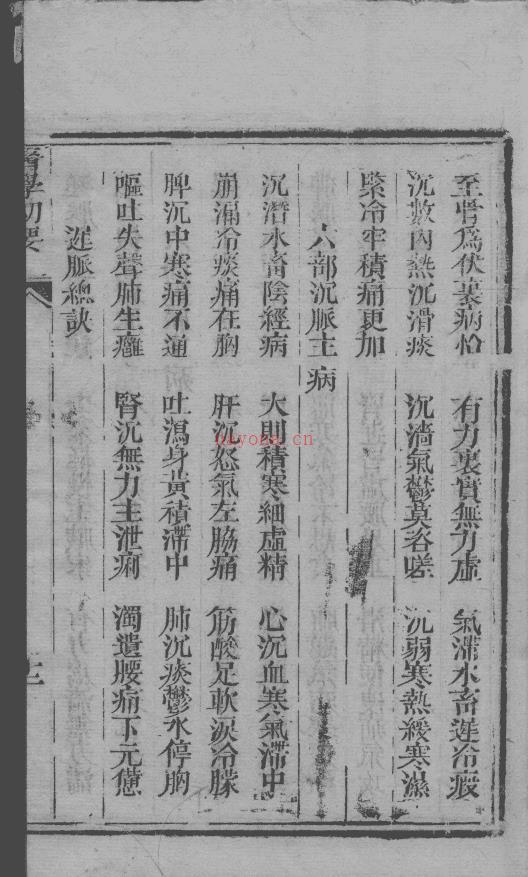 至骨爲伏裏病怡 有力裏實無力虛 氣滯水畜遲冷瘕
沉數內熱沉滑痰 沉濇氣鬱莫咨嗟 沉弱寒熱緩寒濕
緊冷牢積痛更加
六部沉脈主病
沉潛水畜陰經病 大則積寒細虛精 心沉血寒氣滯中
崩漏冷痰痛在胸 肝沉怒氣左脇痛 筋酸足軟淚冷朦
脾沉中寒痛不通 吐瀉身黃積滯中 肺沉痰鬱水停胸
嘔吐失聲肺生癰 腎沉無力主泄痢 濁遺腰痛下元憊
遲脈總訣
醫學切要
hayone.cn